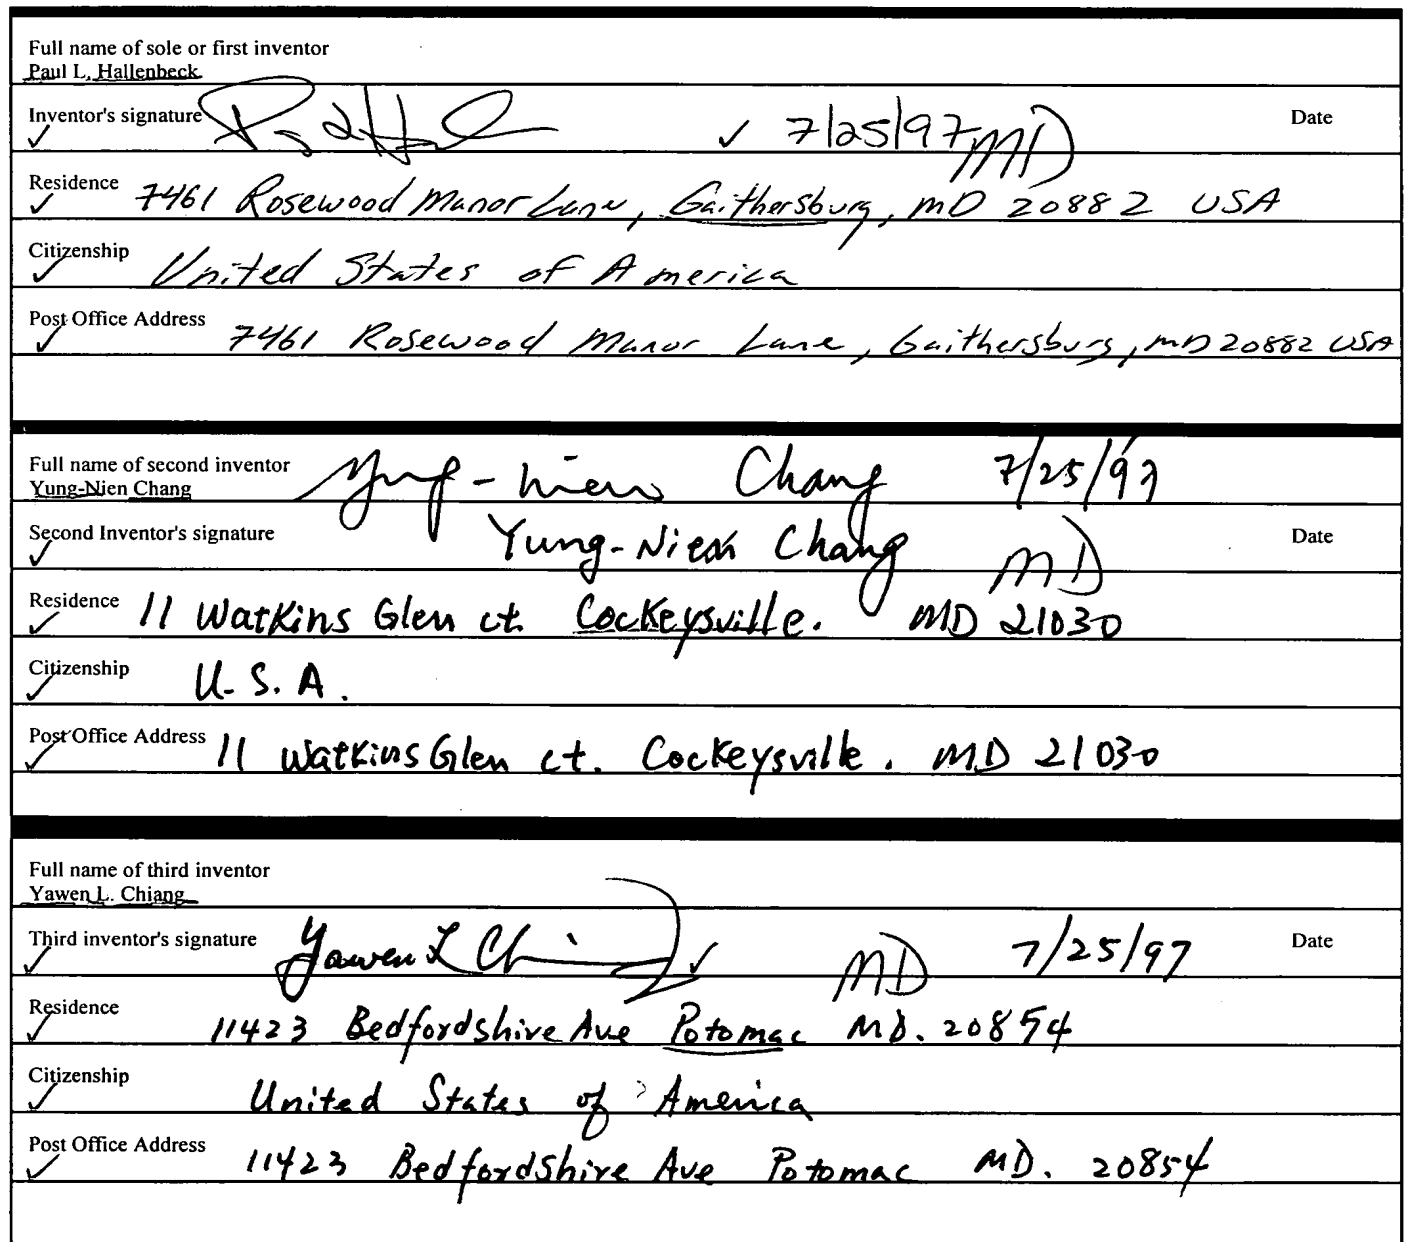 Full name of sole or first inventor
Paul L. Hallenbeck
Inventor's signature 7/25/97 MD Date
Residence 7461 Rosewood Manor Lane, Gaithersburg, MD 20882 USA
Citizenship United States of America
Post Office Address 7461 Rosewood Manor Lane, Gaithersburg, MD 20882 USA
Full name of second inventor Yung-Nien Chang 7/25/97
Yung-Nien Chang
Second Inventor's signature Yung-Nien Chang MD Date
Residence 11 Watkins Glen ct. Cockeysville. MD 21030
Citizenship U.S.A.
Post Office Address 11 Watkins Glen ct. Cockeysville. MD 21030
Full name of third inventor
Yawen L. Chiang
Third inventor's signature Yawen L Chiang MD 7/25/97 Date
Residence 11423 Bedfordshire Ave Potomac MD. 20854
Citizenship United States of America
Post Office Address 11423 Bedfordshire Ave Potomac MD. 20854